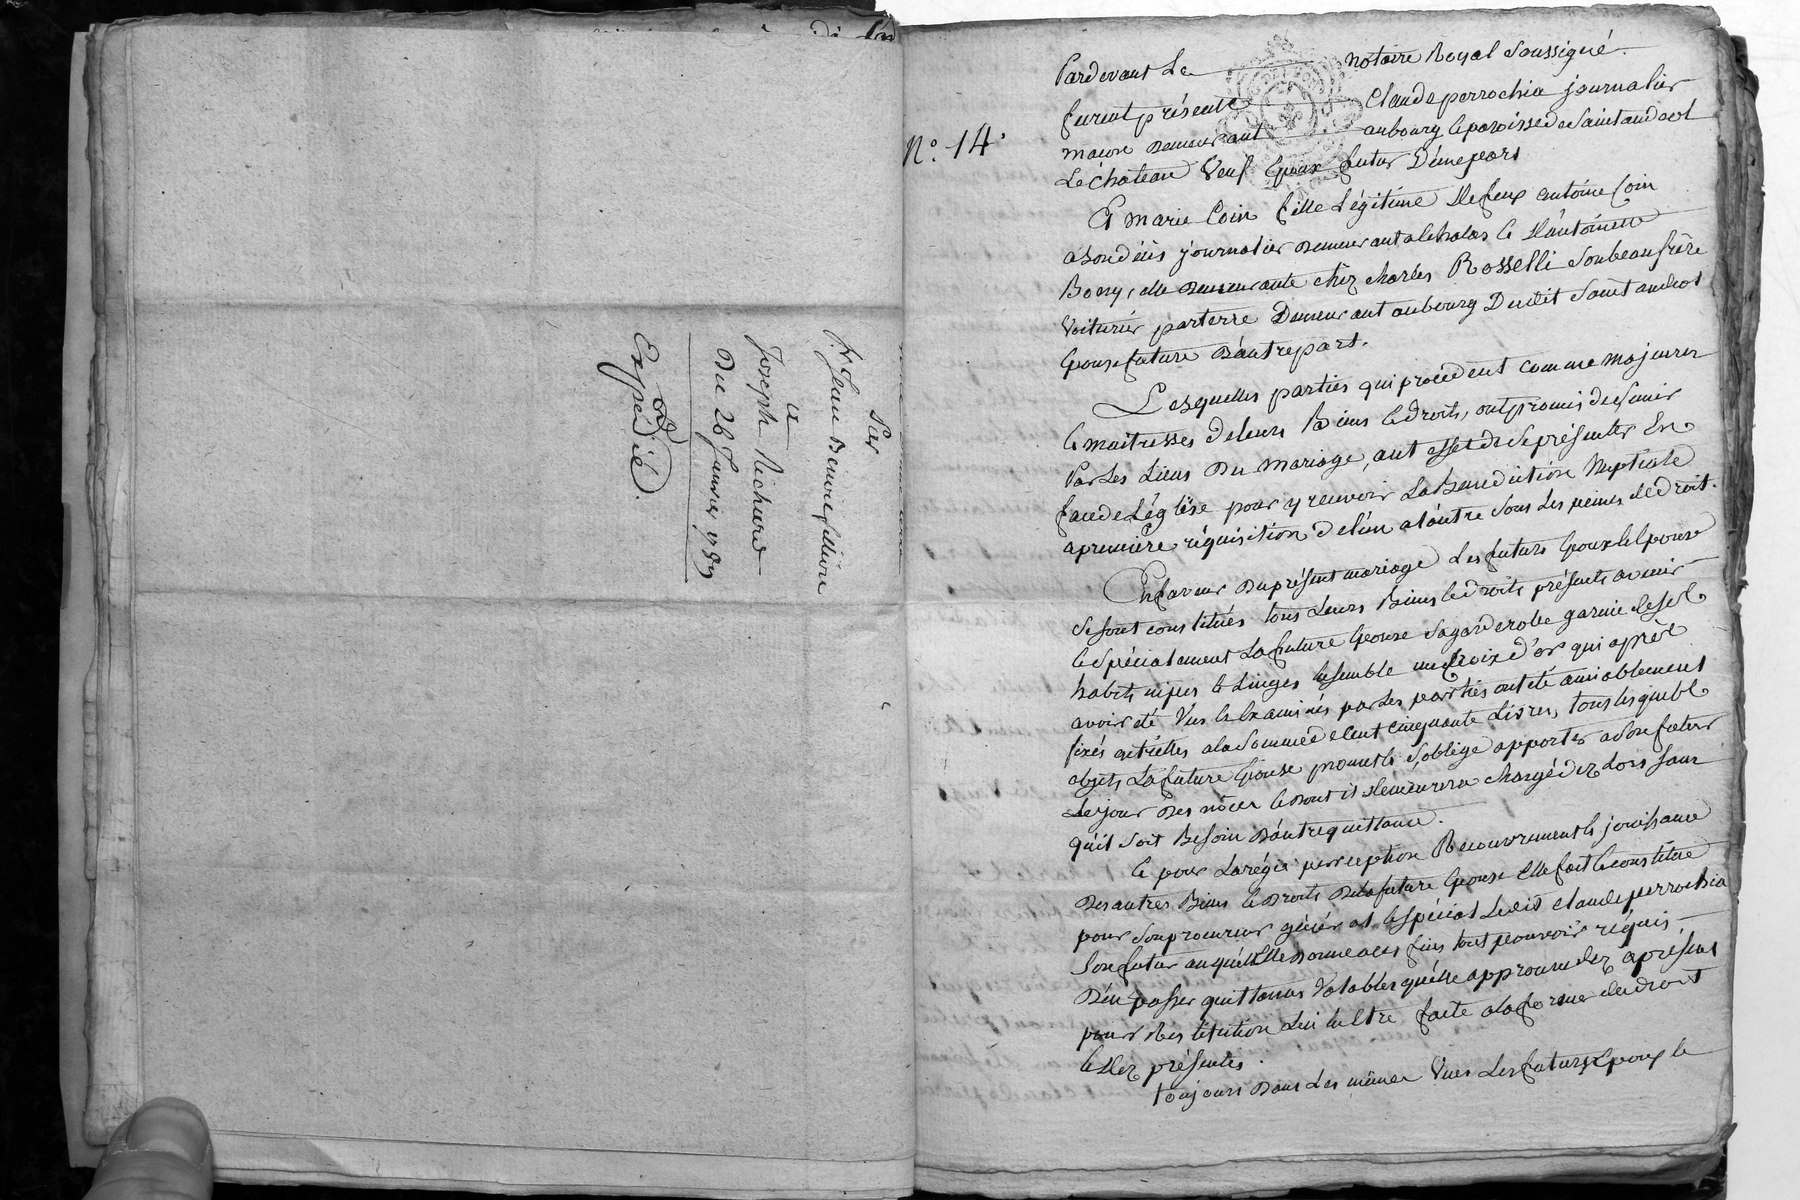 Par
Sr Jean Beauvisse fillion
a
Joseph Richard
Du 26 Janvier 1789
Expédié.
N.º 14.
Pardevant Le notaire Royal Soussigné.
furent présents Claude perrochia journalier
macon demeurant au bourg & paroisse de Saint andeol
Le château Veuf Epoux futur D'une part
Et Marie Coin fille Légitime de feux antoine Coin
a Son décès journalier demeurant a Echalas & d'antoinette
Bony, elle demeurante chez charles Rosselli Son beaufrère
Voiturier par terre Demeurant au bourg Dudit Saint andeol
Epouse future D'autre part.
Lesquelles parties qui procèdent comme majeures
& maitresses de leurs Biens & droits, ont promis de s'unir
Par Les Liens Du mariage, aut effet de Se présenter En
face de L'église pour y recevoir La Benediction Nuptiale
a première réquisition de l'un a l'autre Sous Les peines de Droit.
En faveur Du présent mariage Les futurs Epoux & Epouse
Se Sont constitués tous Leurs Biens & droits présents avenir
& Spécialement La future Epouse Sa garderobe garnie de Ses
habits nipes & Linges Ensemble une Croix d'or qui après
avoir été Vus & Examinés par Les parties ont été amiablement
fixés entr'elles a la Somme de Cent cinquante Livres, tous Lesquels
objets La future Epouse promet & S'oblige apporter a Son futur
Le jour Des nôces & Dont il demeurera chargé dez Lors Sans
qu'il Soit Besoin D'autre quittance.
& pour La régie perception Recouvrement & jouissance
Des autres Biens & Droits De La future Epouse Elle fait & constitue
pour Son procureur général & Spécial Ledit Claude perrochia
Son futur auquel Elle Donne a ces fins tout pouvoir réquis
D'en passer quittances Valables qu'elle approuve dez a présent
pour Restitution Lui En Etre faite a la forme du droit
& Des présentes.
Toujours Dans Les mêmes Vues Les futurs Epoux &